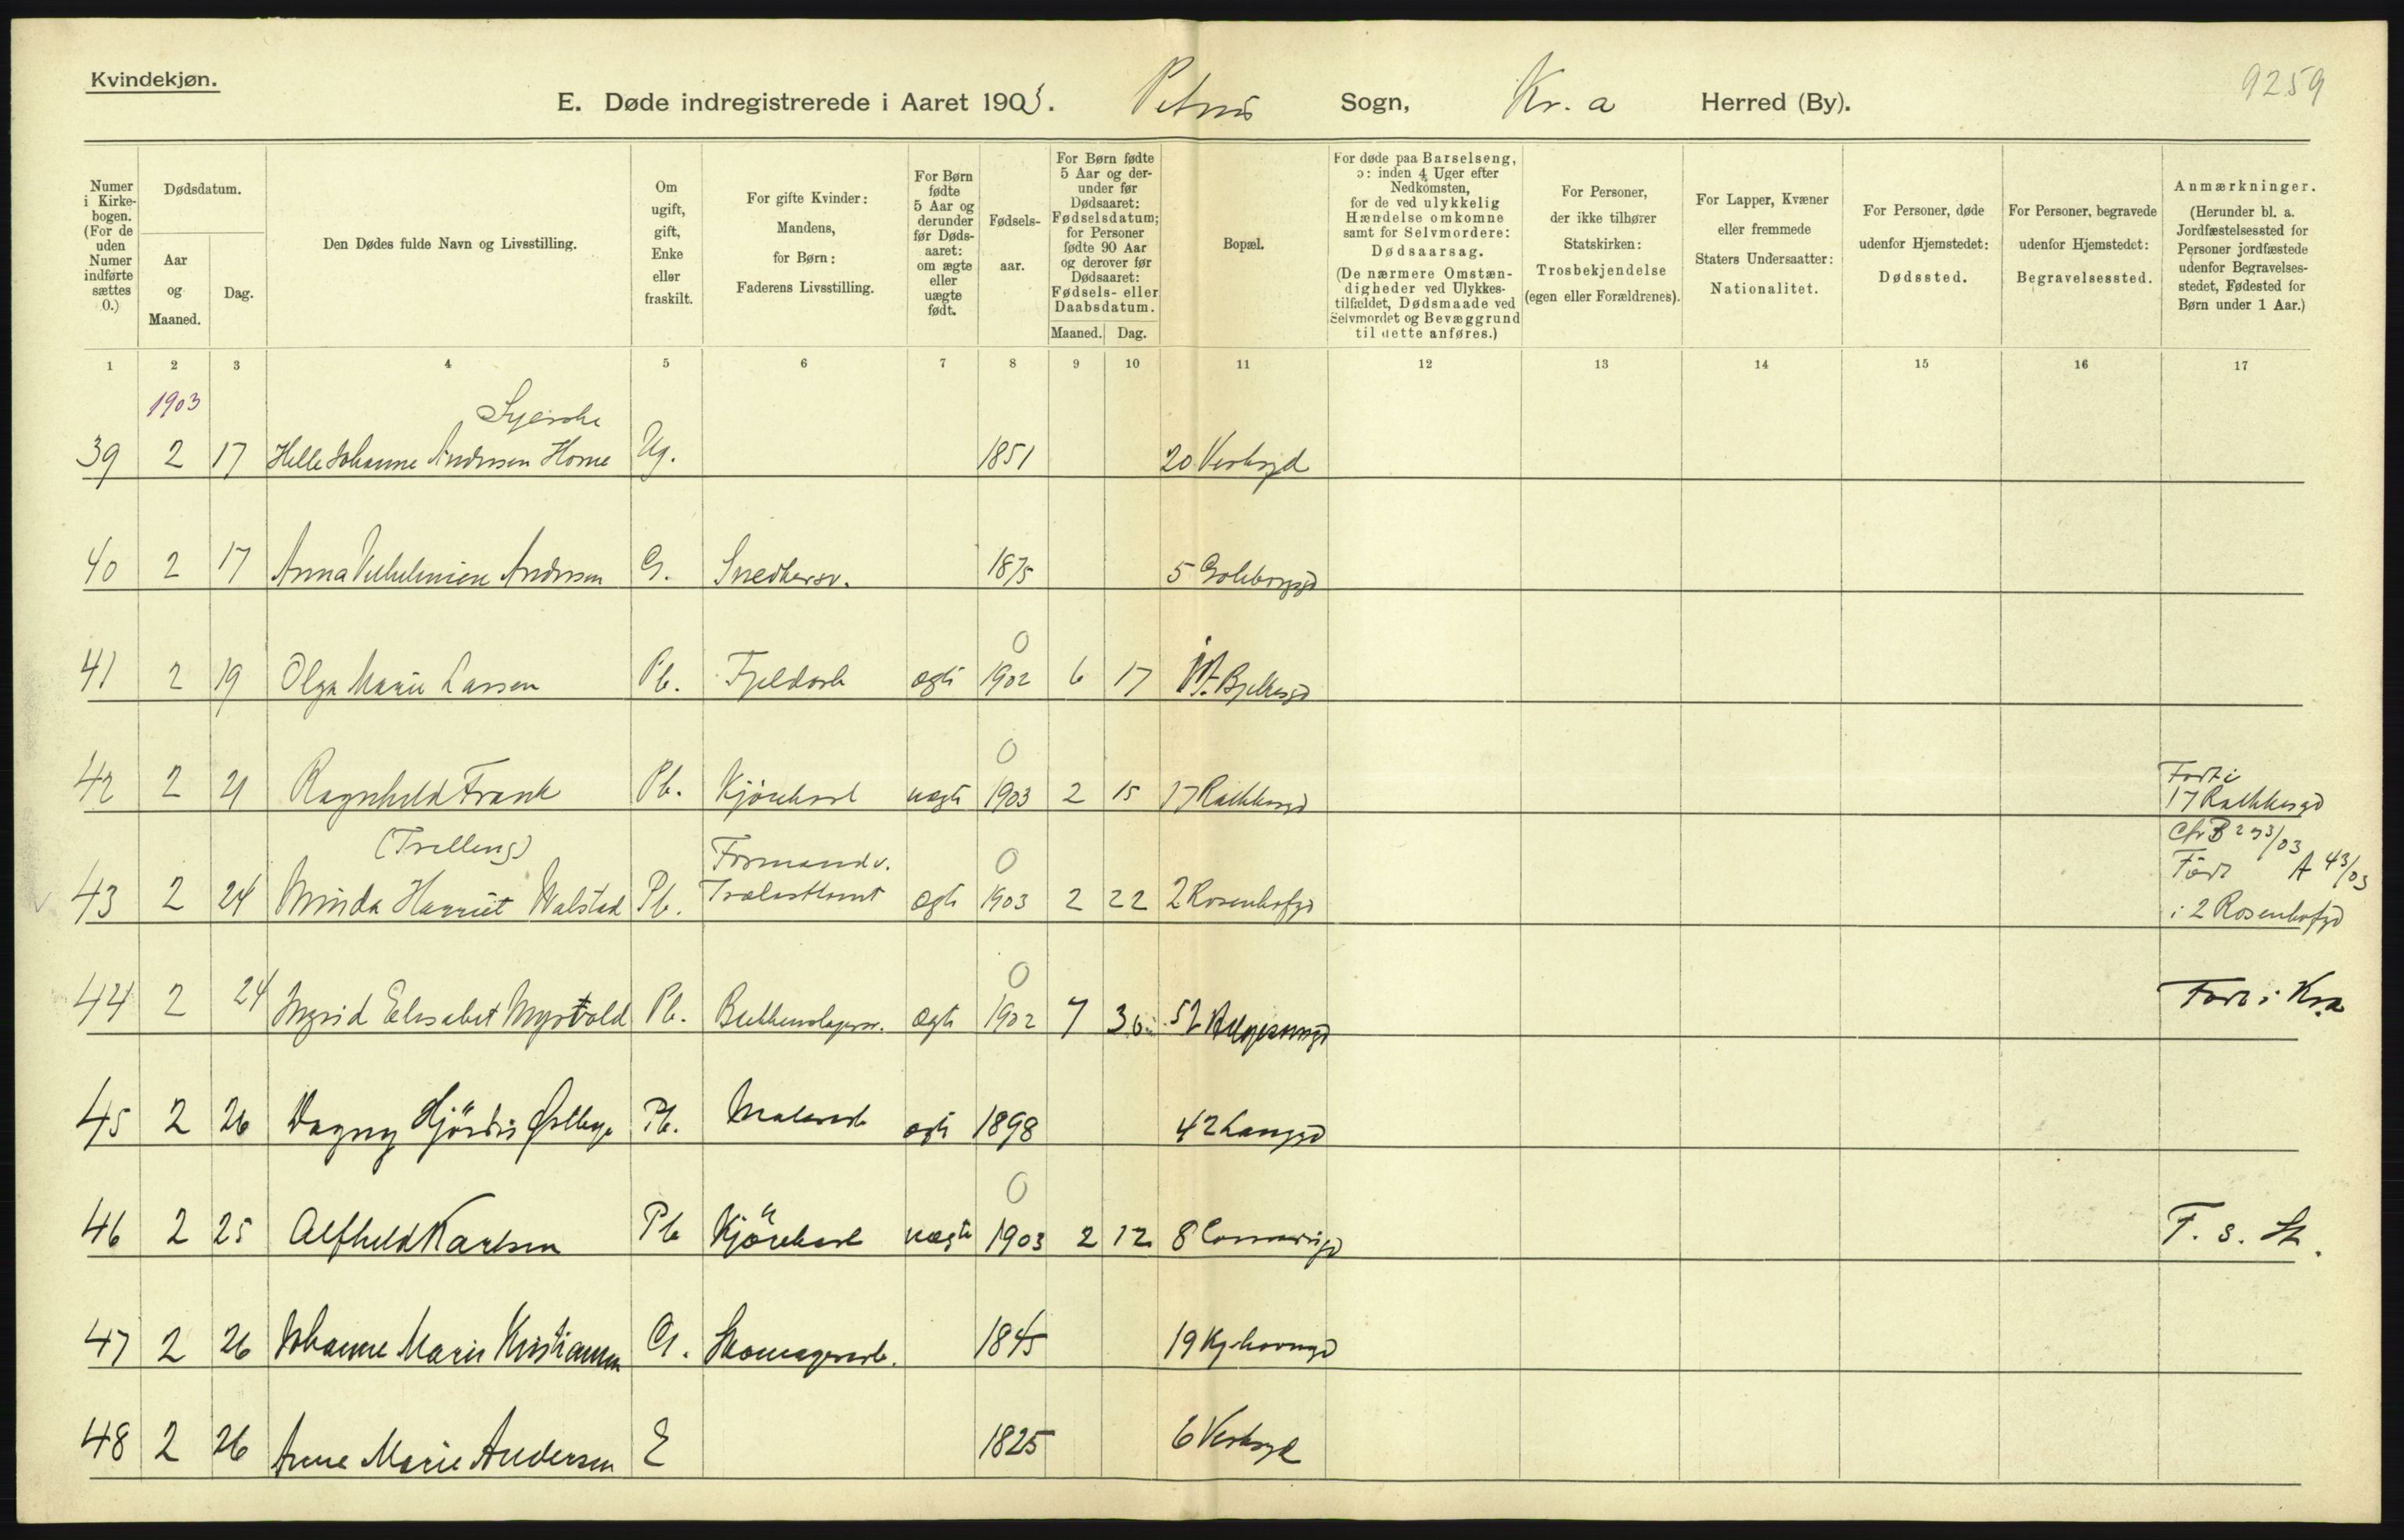 Kvindekjøn.
E. Døde indregistrerede i Aaret 1903. Petrus Sogn, Kr.a Herred (By).
9259
Numer i Kirkebogen. (For de uden Numer indførte sættes 0.)
Dødsdatum.
Aar og Maaned.
Dag.
Den Dødes fulde Navn og Livsstilling.
Om ugift, gift, Enke eller fraskilt.
For gifte Kvinder: Mandens, for Børn: Faderens Livsstilling.
For Børn fødte 5 Aar og derunder før Dødsaaret: om ægte eller uægte født.
Fødselsaar.
For Børn fødte 5 Aar og derunder før Dødsaaret: Fødselsdatum; for Personer fødte 90 Aar og derover før Dødsaaret: Fødsels- eller Daabsdatum.
Maaned. Dag.
Bopæl.
For døde paa Barselseng, ɔ: inden 4 Uger efter Nedkomsten, for de ved ulykkelig Hændelse omkomne samt for Selvmordere: Dødsaarsag. (De nærmere Omstændigheder ved Ulykkestilfældet, Dødsmaade ved Selvmordet og Bevæggrund til dette anføres.)
For Personer, der ikke tilhører Statskirken: Trosbekjendelse (egen eller Forældrenes).
For Lapper, Kvæner eller fremmede Staters Undersaatter: Nationalitet.
For Personer, døde udenfor Hjemstedet: Dødssted.
For Personer, begravede udenfor Hjemstedet: Begravelsessted.
Anmærkninger. (Herunder bl. a. Jordfæstelsessted for Personer jordfæstede udenfor Begravelsesstedet, Fødested for Børn under 1 Aar.)
1 2 3 4 5 6 7 8 9 10 11 12 13 14 15 16 17
1903
Syerske
39 2 17 Helle Johanne Andersen Horne Ug. 1851 20 Verksgd
40 2 17 Anna Vilhelmine Andersen G. Snedkersv. 1875 5 Goteborggd
0
41 2 19 Olga Marie Larsen Pb. Fjeldarb ægte 1902 6 17 Bjelkesgd
0
42 2 21 Ragnhild Frank Pb. Kjörekarl uægte 1903 2 15 17 Rathkesgd Födt i 17 Rathkesgd
(Trilling) Formand v. 0 Cfr B 293/03
43 2 24 Minda Harriet Walstad Pb. Trælasttomt ægte 1903 2 22 2 Rosenhofgd Födt A 43/03 i 2 Rosenhofgd
0
44 2 24 Ingrid Elisabet Myrvold Pb. ægte 1902 7 30 52 Födt i Kra
45 2 26 Dagny Hjördis Østbye Pb. Malersv ægte 1898 42 Langgd
0
46 2 25 Alfhild Karlsen Pb Kjörekarl uægte 1903 2 12 8 F. s. St.
47 2 26 Johanne Marie Kristiansen G. Skomagerarb. 1845 19 Kjøbhavngd
48 2 26 Anne Marie Andersen E 1825 6 Verksgd